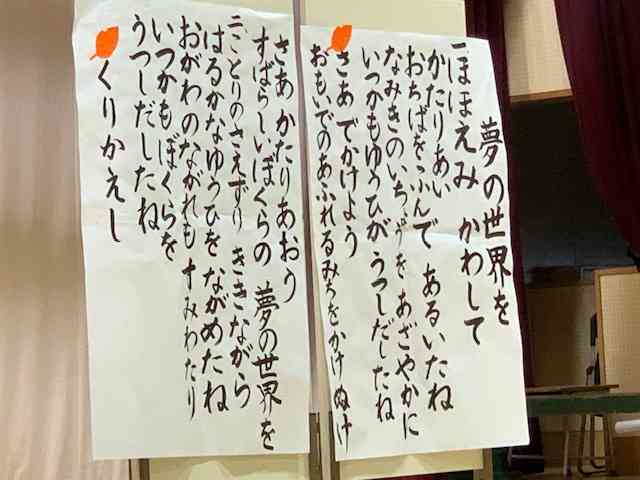 夢の世界を
一ほほえみ かわして
かたりあい
おちばをふんで あるいたね
なみきのいちょうを あざやかに
いつかもゆうひが うつしだしたね
さあ でかけよう
おもいでのあふれるみちをかけぬけ
さあ かたりあおう
すばらしいぼくらの 夢の世界を
二ことりのさえずり ききながら
はるかなゆうひを ながめたね
おがわのながれも すみわたり
いつかもぼくらを
うつしだしたね
くりかえし